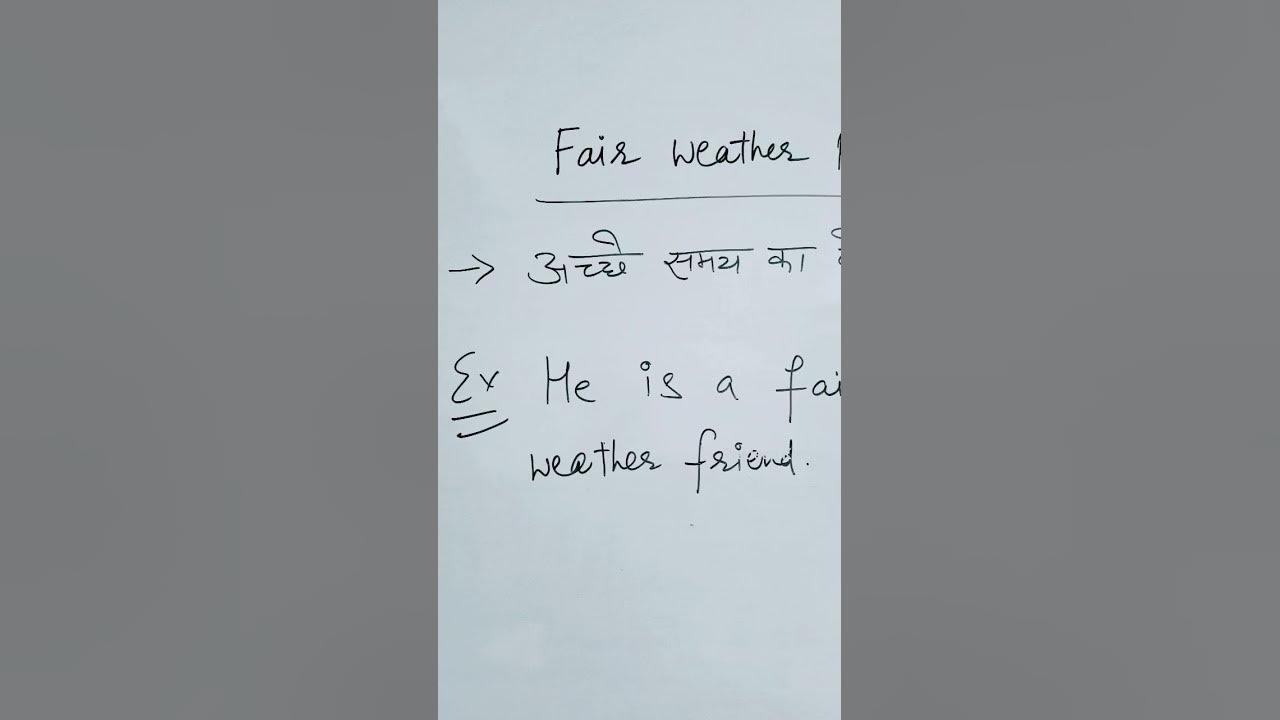 Fair weather
→ अच्छे समय का
Ex He is a fai
weather friend.